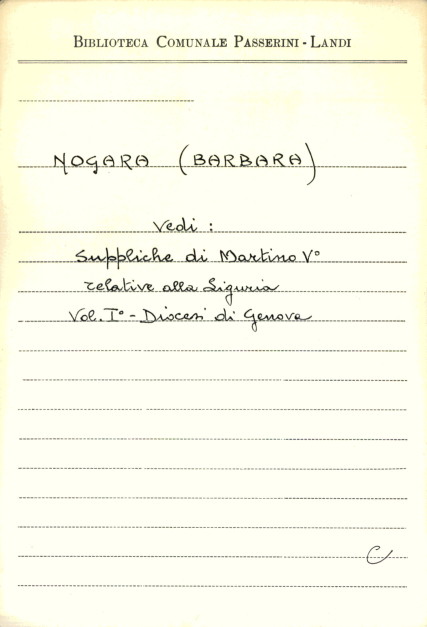 BIBLIOTECA COMUNALE PASSERINI - LANDI
NOGARA (BARBARA)
Vedi :
Suppliche di Martino V°
relative alla Liguria
Vol. I° - Diocesi di Genova
C